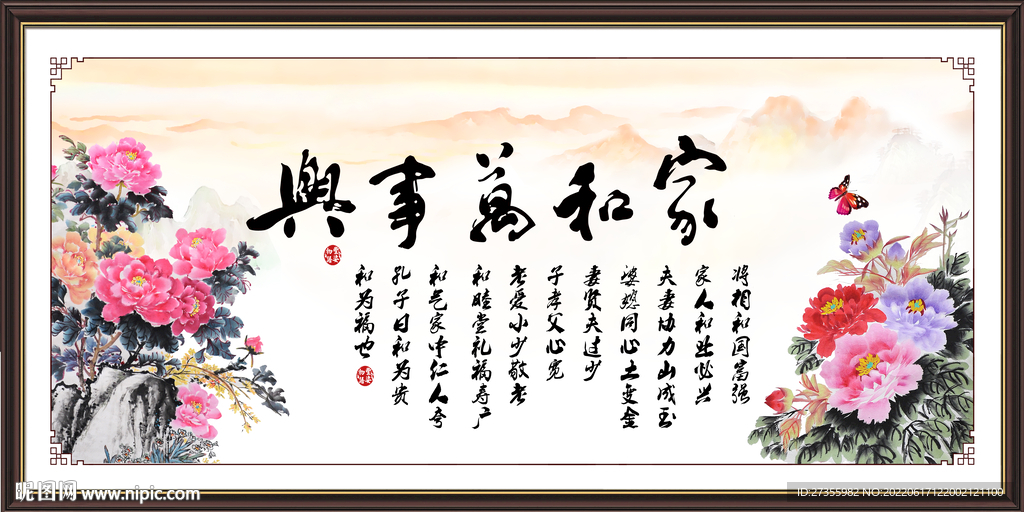 家和萬事興
将相和国富强
家人和业必兴
夫妻协力山成玉
婆媳同心土变金
妻贤夫过少
子孝父心宽
老爱小少敬老
和睦堂礼福寿广
和气家中仁人夸
孔子曰和为贵
和为福也
昵图网 www.nipic.com
ID:27355982 NO:20220617122002121100